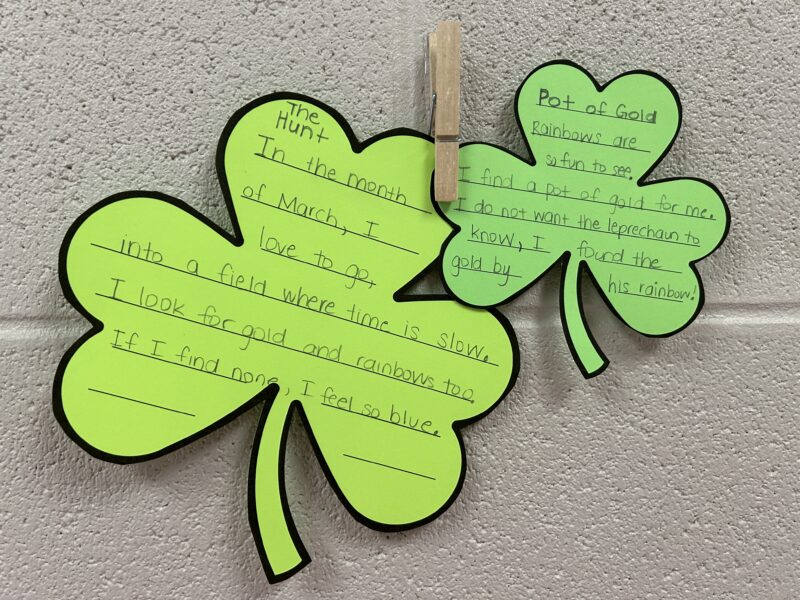 The
Hunt
In the month
of March, I
love to go,
into a field where time is slow.
I look for gold and rainbows too.
If I find none, I feel so blue.
Pot of Gold
Rainbows are
so fun to see.
I find a pot of gold for me.
I do not want the leprechaun to
know, I found the
gold by his rainbow!